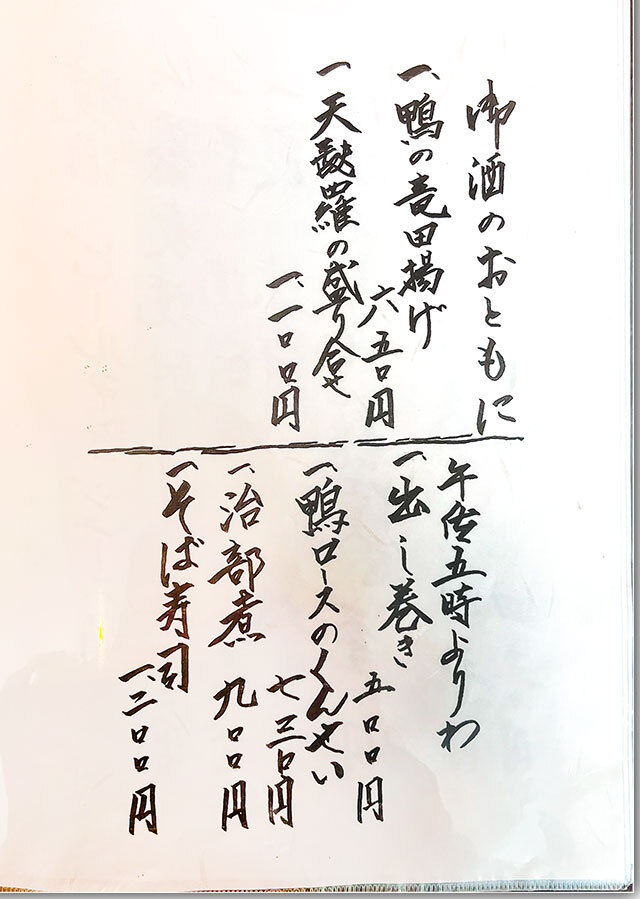 御酒のおともに
一、鴨の竜田揚げ
六五〇円
一、天麩羅の盛り合せ
一、一〇〇円
午后五時よりわ
一、出し巻き
五〇〇円
一、鴨ロースのくんせい
七三〇円
一、治部煮 九〇〇円
一、そば寿司
一、二〇〇円